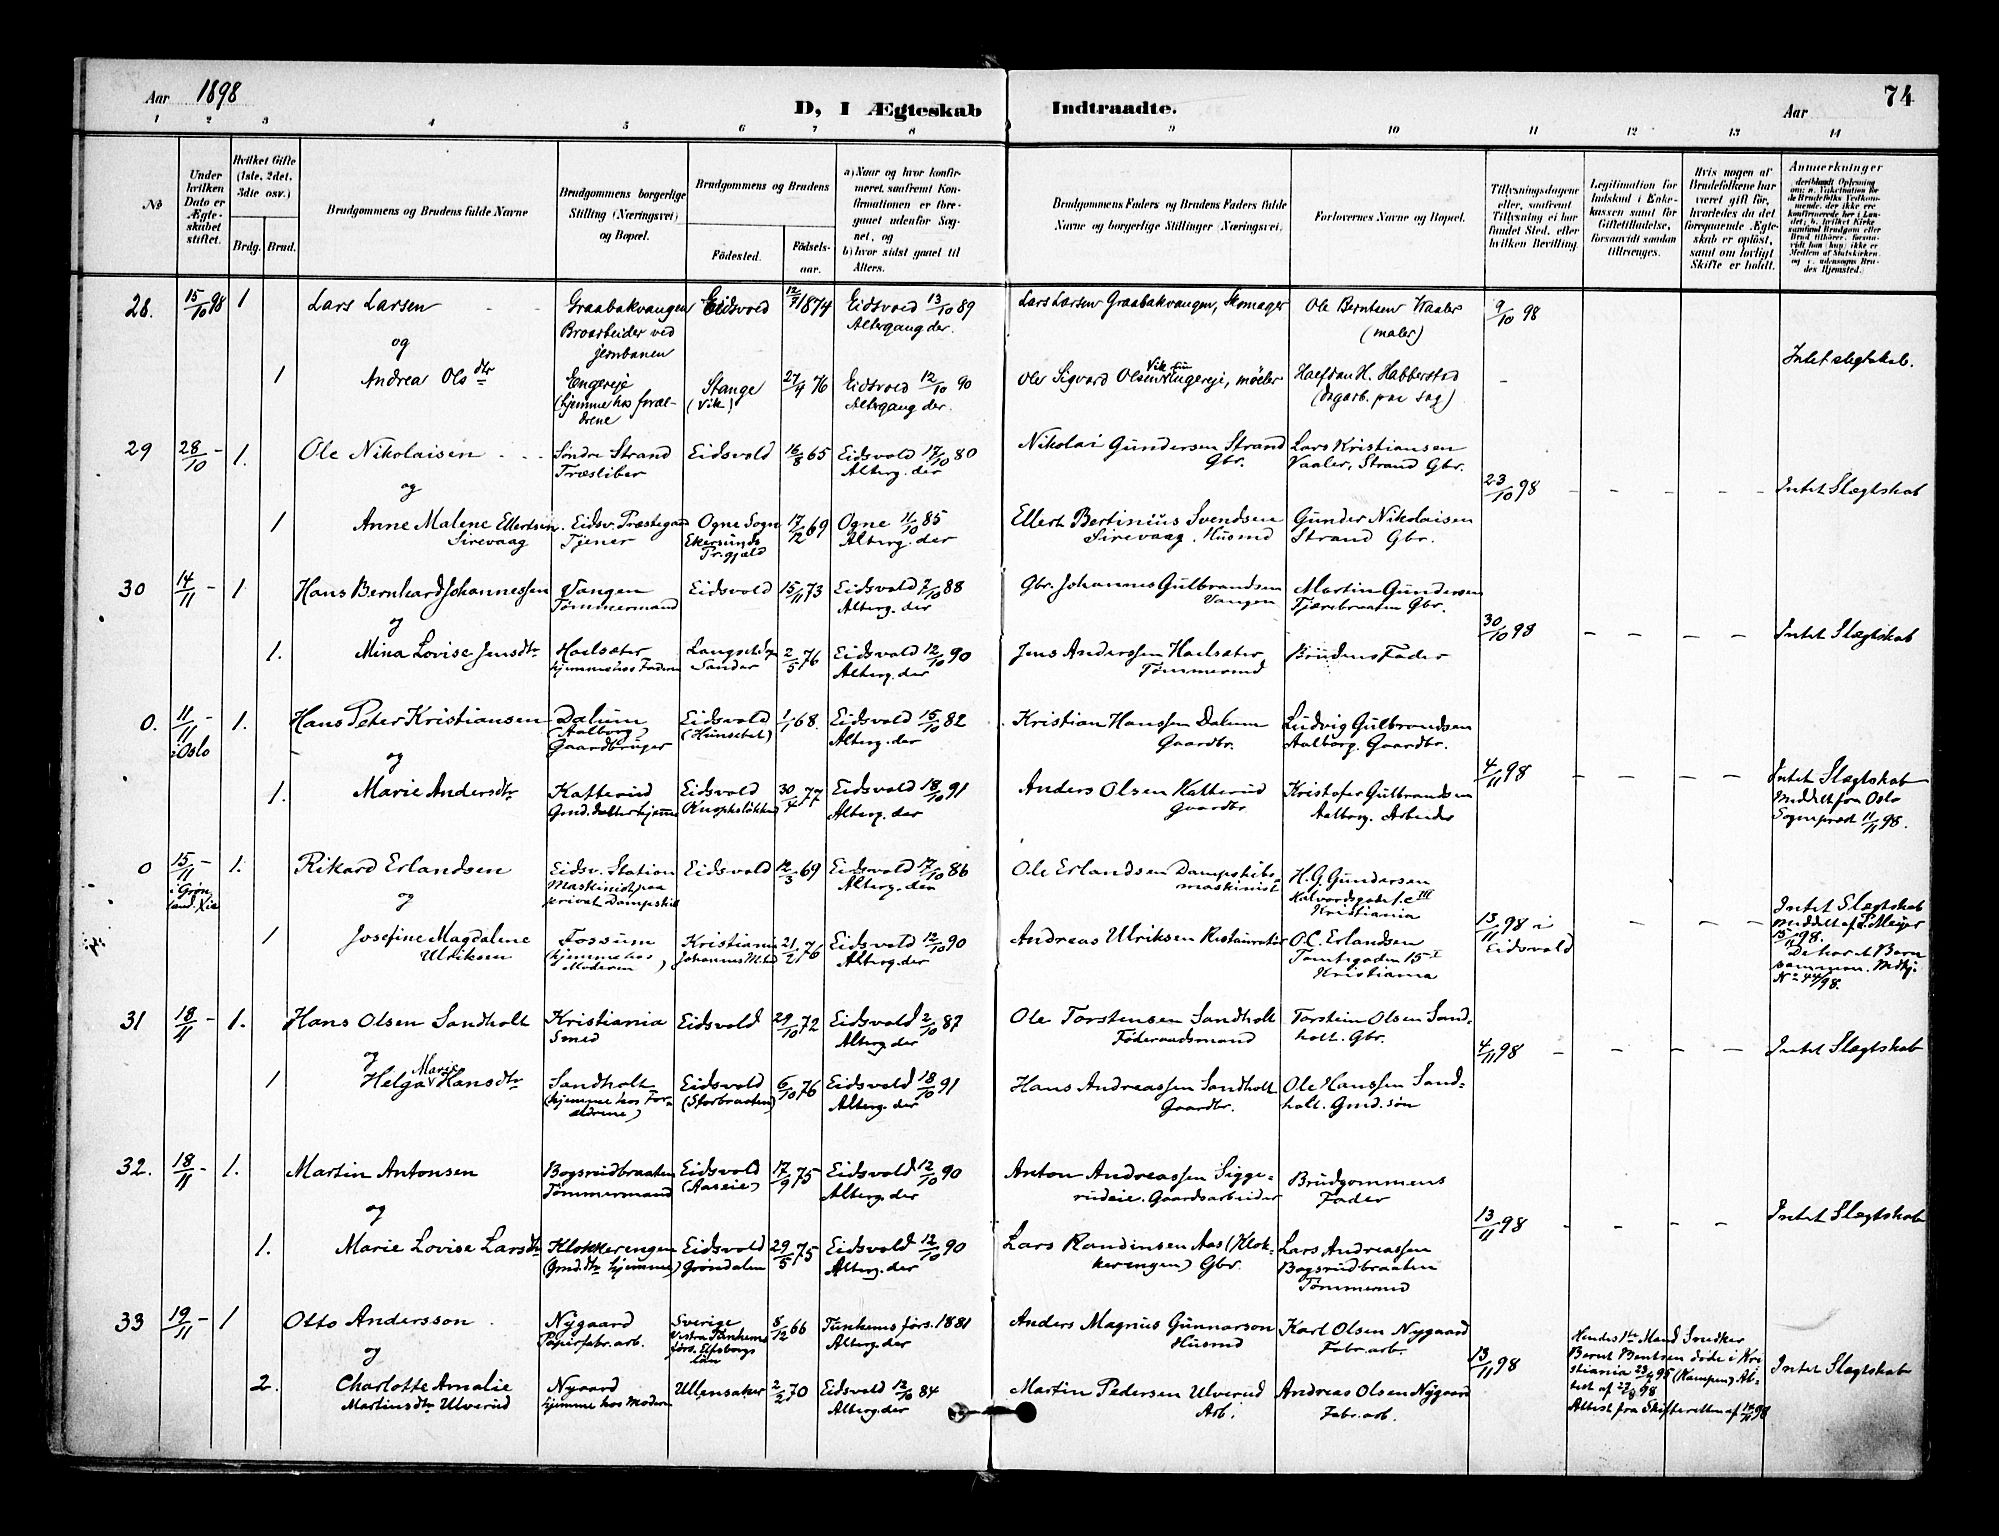 Aar 1898
D, I Ægteskab Indtraadte.
Aar
74
1 2 3 4 5 6 7 8 9 10 11 12 13 14
No
Under hvilken Dato er Ægteskabet stiftet.
Hvilket Gifte (1ste, 2det, 3die osv.)
Brdg. Brud.
Brudgommens og Brudens fulde Navne
Brudgommens borgerlige Stilling (Næringsvei) og Bopæl.
Brudgommens og Brudens
Fødested.
Fødselsaar.
a) Naar og hvor konfirmeret, saafremt Konfirmationen er foregaaet udenfor Sognet, og
b) hvor sidst gaaet til Alters.
Brudgommens Faders og Brudens Faders fulde Navne og borgerlige Stillinger (Næringsvei)
Forlovernes Navne og Bopæl.
Tillysningsdagene eller, saafremt Tillysning ei har fundet Sted, efter hvilken Bevilling.
Legitimation for Indskud i Enkekassen samt for Giftetilladelse, forsaavidt saadan tiltrænges.
Hvis nogen af Brudefolkene har været gift før, hvorledes da det foregaaende Ægteskab er opløst, samt om lovligt Skifte er holdt.
Anmærkninger
28. 15/10 98 1 Lars Larsen
Graabakvangen Broarbeider ved jernbanen
Eidsvold 12/9 1874
Eidsvold 13/10 89 Altergang der.
Lars Larsen Graabakvangen, Skomager
Ole Berntsen Vaaler (maler)
9/10 98
og
Intet slegtskab.
1 Andrea Olsdtr
Engereje (hjemme hos forældrene
Stange (Vik) 27/9 76
Eidsvold 12/10 90 Altergang der.
Ole Sigvard Olsen Engereje, møller
Halfdan H. Habberstad (Dagarb. paa Sag)
29 28/10 - 1. Ole Nikolaisen
Søndre Strand Træsliber
Eidsvold 16/8 65
Eidsvold 17/10 80 Alterg. der
Nikolai Gundersen Strand Gbr.
Lars Kristiansen Vaaler, Strand Gbr.
og
23/10 98 - - - - Intet Slægtskab
1 Anne Malene Ellertsen Sirevaag
Eidsv. Præstegaard Tjener
Ogne Sogn Ekersunds Pr.gjæld 17/12 69
Ogne 11/10 85 Alterg. der
Ellert Bertinius Svendsen Sirevaag. Husmd
Gunder Nikolaisen Strand Gbr.
30 14/11 - 1 Hans Bernhard Johannessen
Vangen Tømmermand
Eidsvold 15/11 73
Eidsvold 7/10 88 Alterg. der
Gbr. Johannes Gulbrandsen Vangen
Martin Gundersen Tjærebraaten Gbr.
og
30/10 98 - - - - Intet Slægtskab
1. Mina Lovise Jensdtr
Hælsæter hjemme hos Faderen
Sander 2/5 76
Eidsvold 12/10 90 Alterg. der
Jens Anderssen Hælsæter Tømmermd
Brudens Fader
0. 11/11 - i Oslo 1. Hans Peter Kristiansen
Dalum (Aalborg) Gaardbruger
Eidsvold (Hunsebet) 1/1 68.
Eidsvold 15/10 82 Alterg. der
Kristian Hanssen Dalum Gaardbr.
Ludvig Gulbrandsen Aalborg. Gaardbr.
og
4/11 98 - - - - Intet Slægtskab
Meddelt fra Oslo Sogneprest 11/11 98.
1. Marie Andersdtr
Katterud Gmd. datter hjemme
Eidsvold Knophsløkken 30/4 77
Eidsvold 18/10 91 Alterg. der
Anders Olsen Katterud Gaardbr
Kristofer Gulbrandsen Aalborg. Arbeider
0 15/11 - i Grønland. Xia 1. Rikard Erlandsen
Eidsv. Station Maskinist paa privat Dampskib
Eidsvold 12/3 69
Eidsvold 17/10 86 Alterg. der
Ole Erlandsen Dampskibsmaskinist
H. G. Gundersen Halvordsgade 1.c III Kristiania
og
13/11 98 i Eidsvold - - - Intet Slægtskab
meddelt af S. Meyer 15/11 98.
De har et Barn sammen. N° 44/98.
1 Josefine Magdalene Ulriksen
Fossum (hjemme hos Moderen)
Kristiania Johannes M. 21/2 76
Eidsvold 12/10 90 Alterg. der
Andreas Ulriksen Restauratør
O. C. Erlandsen Tomtegaden 15 I Kristiania
31 18/11 - 1. Hans Olsen Sandholt
Kristiania Smed
Eidsvold 29/10 72
Eidsvold 2/10 87 Alterg. der
Ole Torstensen Sandholt Føderaadsmand
Torstein Olsen Sandholt. Gbr.
og
4/11 98 - - - - Intet Slægtskab
1 Helga Marie Hansdtr
Sandholt (hjemme hos Forældrene)
Eidsvold (Storbraaten) 6/10 76
Eidsvold 18/10 91 Alterg. der
Hans Andreassen Sandholt Gaardbr.
Ole Hanssen Sandholt. Gmd.søn
32. 18/11 - 1. Martin Antonsen
Bogsrudbraaten Tømmermand
Eidsvold (Aaseie) 17/9 75
Eidsvold 12/10 90 Alterg. der
Anton Andreassen Siggerudeie. Gaardsarbeider
Brudgommens Fader
og
13/11 98 - - - - Intet Slægtskab
1. Marie Lovise Larsdtr
Klokkerengen (Gmd.dtr hjemme)
Eidsvold Grøndalen 29/5 75
Eidsvold 12/10 90 Alterg. der
Lars Randinsen Aas (Klokkerengen) Gbr.
Lars Andreassen Bogsrudbraaten Tømmermd
33 19/11 - 1 Otto Andersson
Nygaard Papirfabr.arb.
Sverige Vestra Tunhems förs. Elfsborgs län 8/12 66
Tunhems förs. 1881 Alterg. der
Anders Magnus Gunnarson Husmd
Karl Olsen Nygaard Fabr.arb.
og
13/11 98
Hendes 1ste Mand Snedker Bernt Bentsen døde i Kristiania 23/4 95 (Kampen) Attest af 27/8 98 Attest fra Skifteretten af 14/11 98
Intet Slægtskab
2. Charlotte Amalie Martinsdtr Ulverud
Nygaard hjemme hos Moderen
Ullensaker 2/2 70
Eidsvold 12/10 84 Alterg. der
Martin Pedersen Ulverud Arb.
Andreas Olsen Nygaard Fabr.arb.